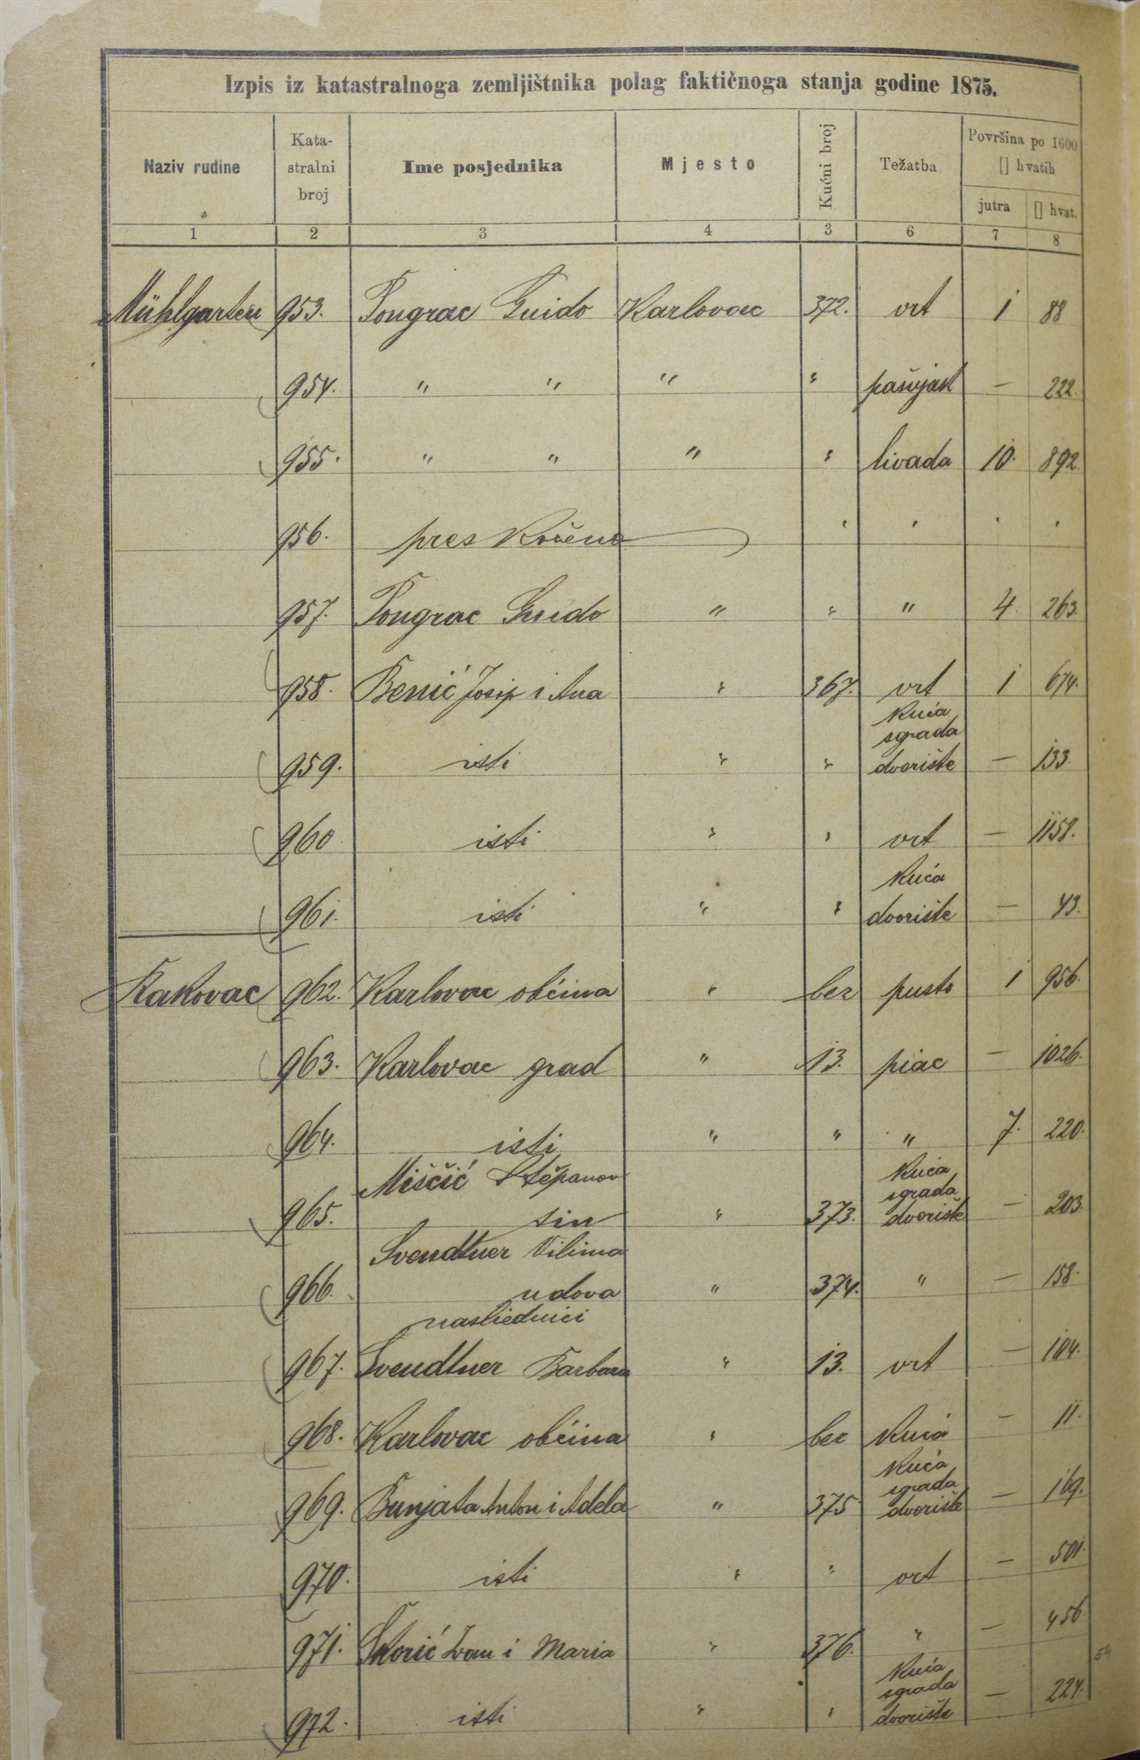 Izpis iz katastralnoga zemljištnika polag faktičnoga stanja godine 1875.
Naziv rudine Kata-stralni broj Ime posjednika Mjesto Kućni broj Težatba Površina po 1600 [] hvatih
jutra [] hvat.
1 2 3 4 3 6 7 8
Mühlgarten 953. Pongrac Guido Karlovac 372. vrt 1 88
954. " " " " pašnjak — 222
955. " " " " livada 10. 892
956. preskočeno
957. Pongrac Guido " " " 4 263.
958. Benić Josip i Ana " 367. vrt 1 674.
kuća
sgrada
959. isti " " dvorište — 133.
960 isti " " vrt — 1158.
kuća
961. isti " " dvorište — 43.
Rakovac 962. Karlovac občina " bez pusto 1 956.
963. Karlovac grad " 13. piac — 1026.
964. isti " " " 7. 220.
Miščić Stěpanov kuća
sgrada
965. sin " 373. dvorište — 203
Svendtner Vilima
966. udova " 374. " — 158.
nasliednici
967. Svendtner Barbara " 13. vrt — 104.
968. Karlovac občina " bez kuća — 11.
kuća
sgrada
969. Bunjata Anton i Adela " 375 dvorište — 169.
970. isti " " vrt — 501.
971. Škorić Ivan i Maria " 376. " — 456
kuća
sgrada
972. isti " " dvorište — 224.